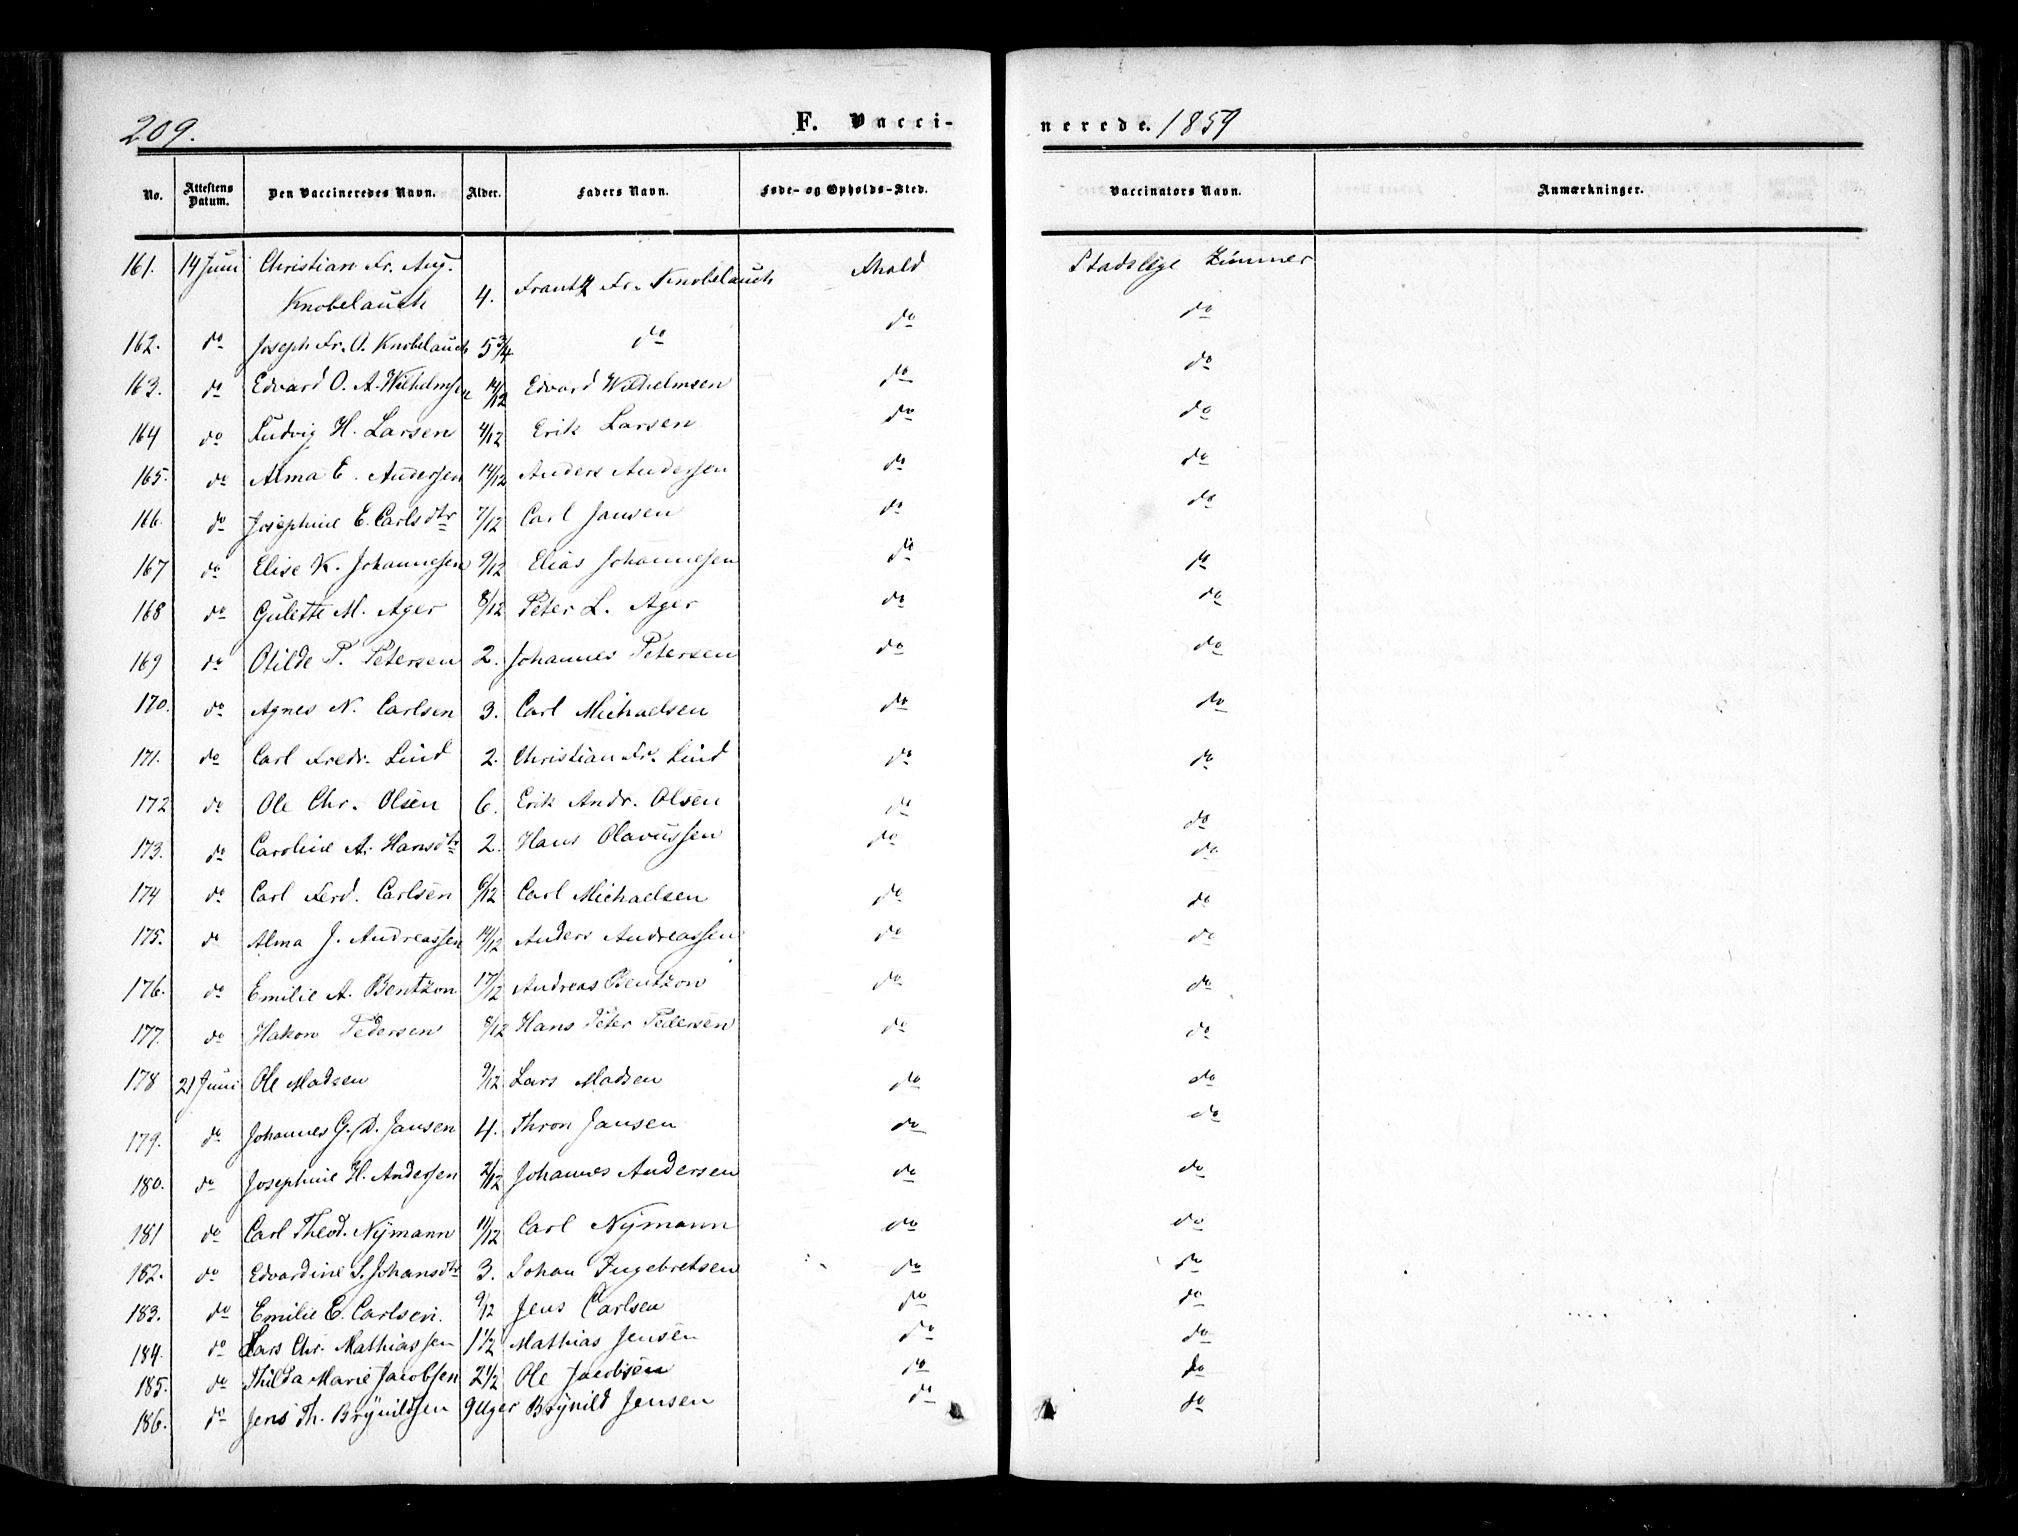 209.
F. Vacci-
nerede. 1859
No. Attestens Datum. Den Vaccineredes Navn. Alder. Faders Navn. Føde- og Opholds-Sted. Vaccinators Navn. Anmærkninger.
161. 14 Juni Christian Fr. Aug. Knobelauch 4. Frantz Fr. Knobelauch Stadslæge Zimmer
162. do Joseph Fr. O. Knobelauch 5 3/4 do do do
163. do Edvard O. A. Wilhelmsen 14/12 Edvard Wilhelmsen do do
164 do Ludvig H. Larsen 4/12 Erik Larsen do do
165. do Alma E. Andersen 14/12 Anders Andersen do do
166. do Josephine E. Carlsdtr 7/12 Carl Jansen do do
167 do Elise K. Johannesen 9/12 Elias Johannesen do do
168 do Gulette M. Ager 8/12 Peter L. Ager do do
169 do Otilde P. Petersen 2. Johannes Petersen do do
170. do Agnes N. Carlsen 3. Carl Michaelsen do do
171. do Carl Fredr. Lind 2. Christian Fr. Lind do do
172 do Ole Chr. Olsen 6. Erik Andr. Olsen do do
173. do Caroline A. Hansdtr 2. Hans Olavussen do do
174 do Carl Ferd. Carlsen 6/12 Carl Michaelsen do do
175. do Alma J. Andreassen 14/12 Anders Andreassen do do
176. do Emilie A. Bentzon 17/12 Andreas Bentzon do do
177. do Hakon Pedersen 8/12 Hans Peter Pedersen do do
178 21 Juni Ole Madsen 9/12 Lars Madsen do do
179. do Johannes G. D. Jansen 4. Thron Jansen do do
180. do Josephine H. Andersen 2/12 Johannes Andersen do do
181 do Carl Theod. Nÿmann 11/12 Carl Nÿmann do do
182. do Edvardine S. Johansdtr 3. Johan Ingebretsen do do
183. do Emilie E. Carlsen. 9/12 Jens Carlsen do do
184. do Lars Chr. Mathiassen 1 1/2 Mathias Jensen do do
185. do Thilda Marie Jacobsen 2 1/2 Ole Jacobsen do do
186. do Jens Th. Brÿnildsen 9 Uger Brÿnild Jensen do do